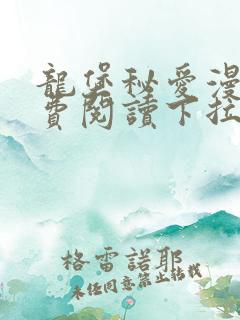 龍堡秘愛漫
費閱讀下拉
格雷諾耶
未經同意禁止轉載